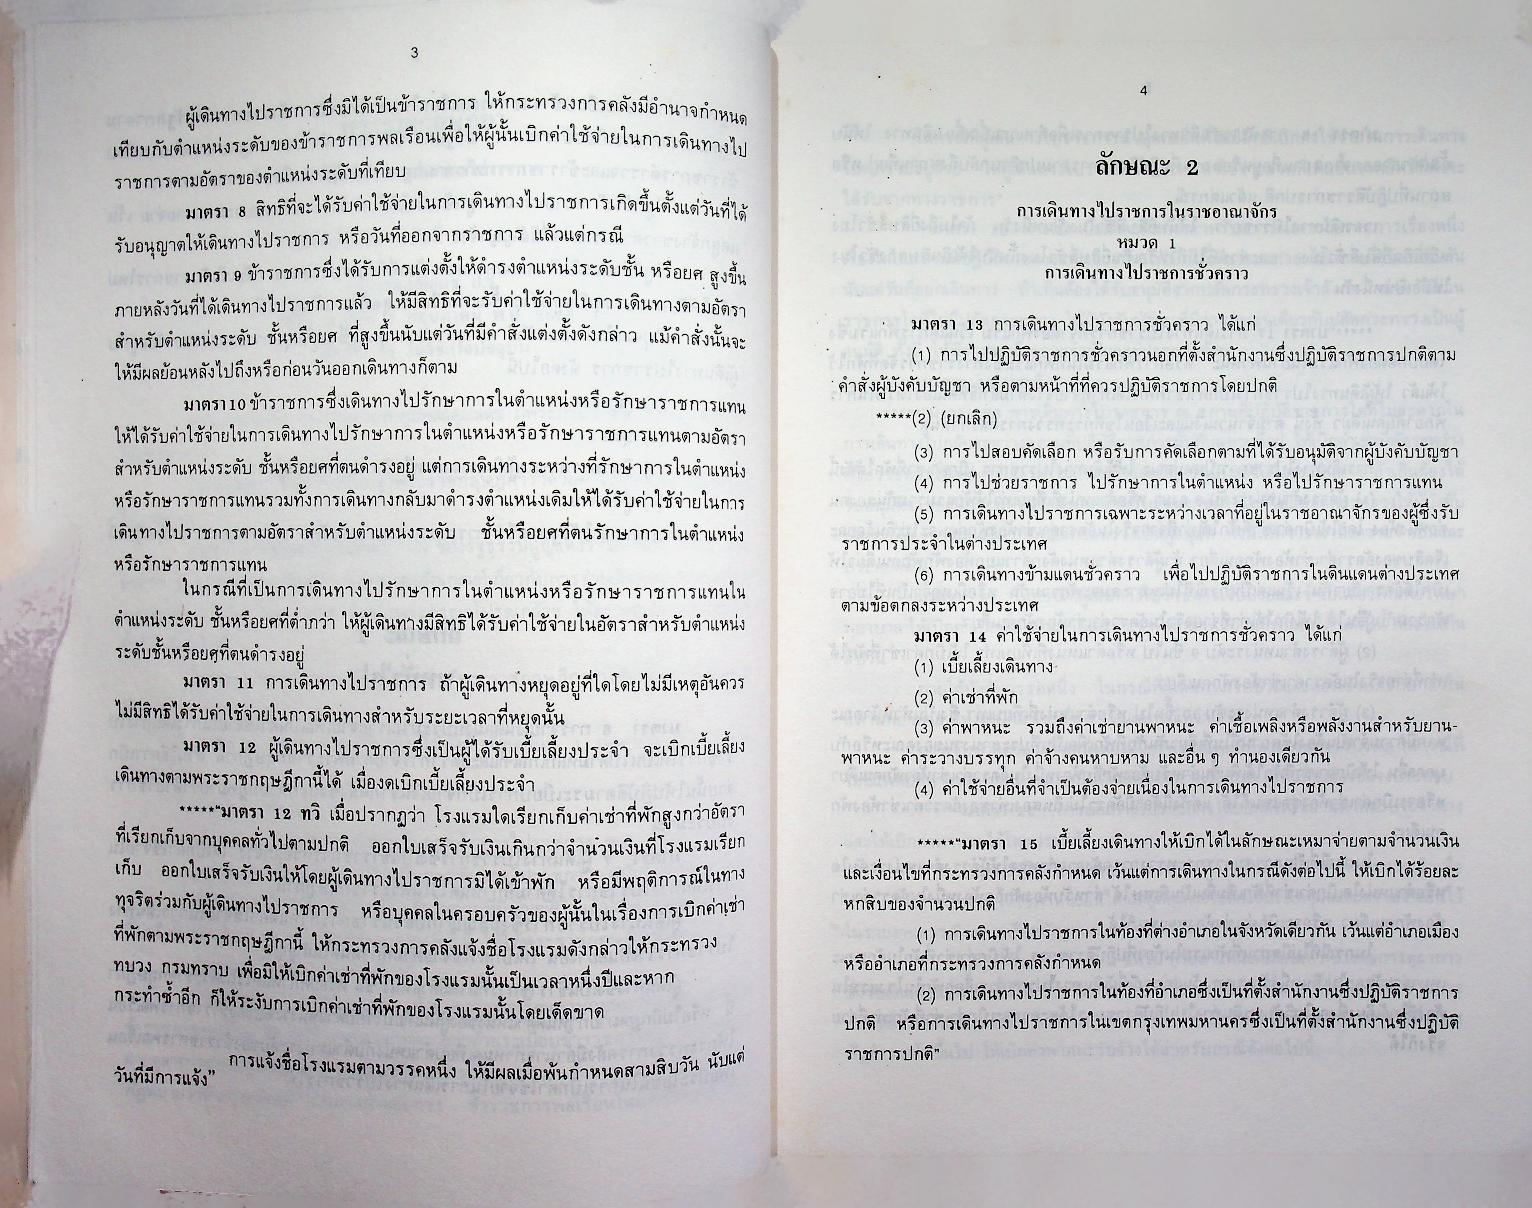 3
ผู้เดินทางไปราชการซึ่งมิได้เป็นข้าราชการ ให้กระทรวงการคลังมีอำนาจกำหนด
เทียบกับตำแหน่งระดับของข้าราชการพลเรือนเพื่อให้ผู้นั้นเบิกค่าใช้จ่ายในการเดินทางไป
ราชการตามอัตราของตำแหน่งระดับที่เทียบ
มาตรา 8 สิทธิที่จะได้รับค่าใช้จ่ายในการเดินทางไปราชการเกิดขึ้นตั้งแต่วันที่ได้
รับอนุญาตให้เดินทางไปราชการ หรือวันที่ออกจากราชการ แล้วแต่กรณี
มาตรา 9 ข้าราชการซึ่งได้รับการแต่งตั้งให้ดำรงตำแหน่งระดับชั้น หรือยศ สูงขึ้น
ภายหลังวันที่ได้เดินทางไปราชการแล้ว ให้มีสิทธิที่จะรับค่าใช้จ่ายในการเดินทางตามอัตรา
สำหรับตำแหน่งระดับ ชั้นหรือยศ ที่สูงขึ้นนับแต่วันที่มีคำสั่งแต่งตั้งดังกล่าว แม้คำสั่งนั้นจะ
ให้มีผลย้อนหลังไปถึงหรือก่อนวันออกเดินทางก็ตาม
มาตรา 10 ข้าราชการซึ่งเดินทางไปรักษาการในตำแหน่งหรือรักษาราชการแทน
ให้ได้รับค่าใช้จ่ายในการเดินทางไปรักษาการในตำแหน่งหรือรักษาราชการแทนตามอัตรา
สำหรับตำแหน่งระดับ ชั้นหรือยศที่ตนดำรงอยู่ แต่การเดินทางระหว่างที่รักษาการในตำแหน่ง
หรือรักษาราชการแทนรวมทั้งการเดินทางกลับมาดำรงตำแหน่งเดิมให้ได้รับค่าใช้จ่ายในการ
เดินทางไปราชการตามอัตราสำหรับตำแหน่งระดับ ชั้นหรือยศที่ตนรักษาการในตำแหน่ง
หรือรักษาราชการแทน
ในกรณีที่เป็นการเดินทางไปรักษาการในตำแหน่งหรือรักษาราชการแทนใน
ตำแหน่งระดับ ชั้นหรือยศที่ต่ำกว่า ให้ผู้เดินทางมีสิทธิได้รับค่าใช้จ่ายในอัตราสำหรับตำแหน่ง
ระดับชั้นหรือยศที่ตนดำรงอยู่
มาตรา 11 การเดินทางไปราชการ ถ้าผู้เดินทางหยุดอยู่ที่ใดโดยไม่มีเหตุอันควร
ไม่มีสิทธิได้รับค่าใช้จ่ายในการเดินทางสำหรับระยะเวลาที่หยุดนั้น
มาตรา 12 ผู้เดินทางไปราชการซึ่งเป็นผู้ได้รับเบี้ยเลี้ยงประจำ จะเบิกเบี้ยเลี้ยง
เดินทางตามพระราชกฤษฎีกานี้ได้ เมื่องดเบิกเบี้ยเลี้ยงประจำ
*****"มาตรา 12 ทวิ เมื่อปรากฏว่า โรงแรมใดเรียกเก็บค่าเช่าที่พักสูงกว่าอัตรา
ที่เรียกเก็บจากบุคคลทั่วไปตามปกติ ออกใบเสร็จรับเงินเกินกว่าจำนวนเงินที่โรงแรมเรียก
เก็บ ออกใบเสร็จรับเงินให้โดยผู้เดินทางไปราชการมิได้เข้าพัก หรือมีพฤติการณ์ในทาง
ทุจริตร่วมกับผู้เดินทางไปราชการ หรือบุคคลในครอบครัวของผู้นั้นในเรื่องการเบิกค่าเช่า
ที่พักตามพระราชกฤษฎีกานี้ ให้กระทรวงการคลังแจ้งชื่อโรงแรมดังกล่าวให้กระทรวง
ทบวง กรมทราบ เพื่อมิให้เบิกค่าเช่าที่พักของโรงแรมนั้นเป็นเวลาหนึ่งปีและหาก
กระทำซ้ำอีก ก็ให้ระงับการเบิกค่าเช่าที่พักของโรงแรมนั้นโดยเด็ดขาด
การแจ้งชื่อโรงแรมตามวรรคหนึ่ง ให้มีผลเมื่อพ้นกำหนดสามสิบวัน นับแต่
วันที่มีการแจ้ง"
4
ลักษณะ 2
การเดินทางไปราชการในราชอาณาจักร
หมวด 1
การเดินทางไปราชการชั่วคราว
มาตรา 13 การเดินทางไปราชการชั่วคราว ได้แก่
(1) การไปปฏิบัติราชการชั่วคราวนอกที่ตั้งสำนักงานซึ่งปฏิบัติราชการปกติตาม
คำสั่งผู้บังคับบัญชา หรือตามหน้าที่ที่ควรปฏิบัติราชการโดยปกติ
*****(2) (ยกเลิก)
(3) การไปสอบคัดเลือก หรือรับการคัดเลือกตามที่ได้รับอนุมัติจากผู้บังคับบัญชา
(4) การไปช่วยราชการ ไปรักษาการในตำแหน่ง หรือไปรักษาราชการแทน
(5) การเดินทางไปราชการเฉพาะระหว่างเวลาที่อยู่ในราชอาณาจักรของผู้ซึ่งรับ
ราชการประจำในต่างประเทศ
(6) การเดินทางข้ามแดนชั่วคราว เพื่อไปปฏิบัติราชการในดินแดนต่างประเทศ
ตามข้อตกลงระหว่างประเทศ
มาตรา 14 ค่าใช้จ่ายในการเดินทางไปราชการชั่วคราว ได้แก่
(1) เบี้ยเลี้ยงเดินทาง
(2) ค่าเช่าที่พัก
(3) ค่าพาหนะ รวมถึงค่าเช่ายานพาหนะ ค่าเชื้อเพลิงหรือพลังงานสำหรับยาน-
พาหนะ ค่าระวางบรรทุก ค่าจ้างคนหาบหาม และอื่น ๆ ทำนองเดียวกัน
(4) ค่าใช้จ่ายอื่นที่จำเป็นต้องจ่ายเนื่องในการเดินทางไปราชการ
*****"มาตรา 15 เบี้ยเลี้ยงเดินทางให้เบิกได้ในลักษณะเหมาจ่ายตามจำนวนเงิน
และเงื่อนไขที่กระทรวงการคลังกำหนด เว้นแต่การเดินทางในกรณีดังต่อไปนี้ ให้เบิกได้ร้อยละ
หกสิบของจำนวนปกติ
(1) การเดินทางไปราชการในท้องที่ต่างอำเภอในจังหวัดเดียวกัน เว้นแต่อำเภอเมือง
หรืออำเภอที่กระทรวงการคลังกำหนด
(2) การเดินทางไปราชการในท้องที่อำเภอซึ่งเป็นที่ตั้งสำนักงานซึ่งปฏิบัติราชการ
ปกติ หรือการเดินทางไปราชการในเขตกรุงเทพมหานครซึ่งเป็นที่ตั้งสำนักงานซึ่งปฏิบัติ
ราชการปกติ"